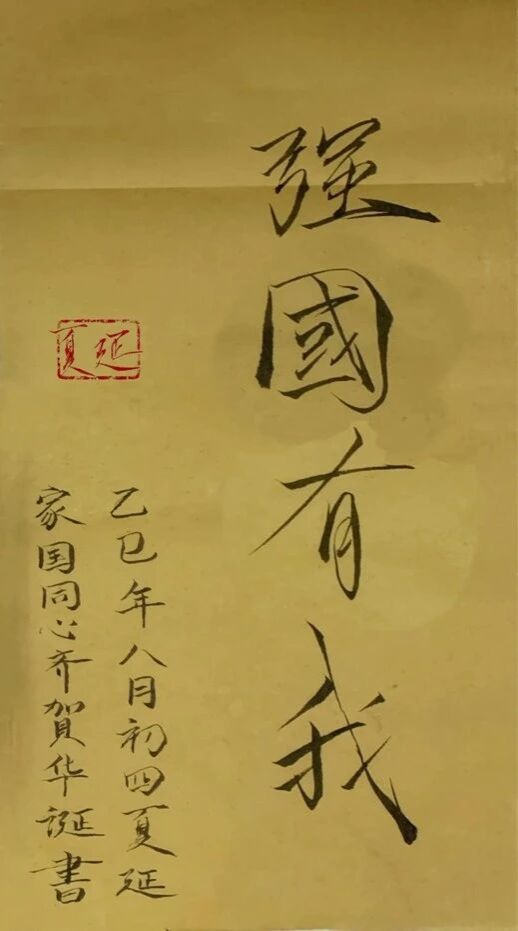 强國有我
乙巳年八月初四夏延
家国同心齐賀华誕書
夏延